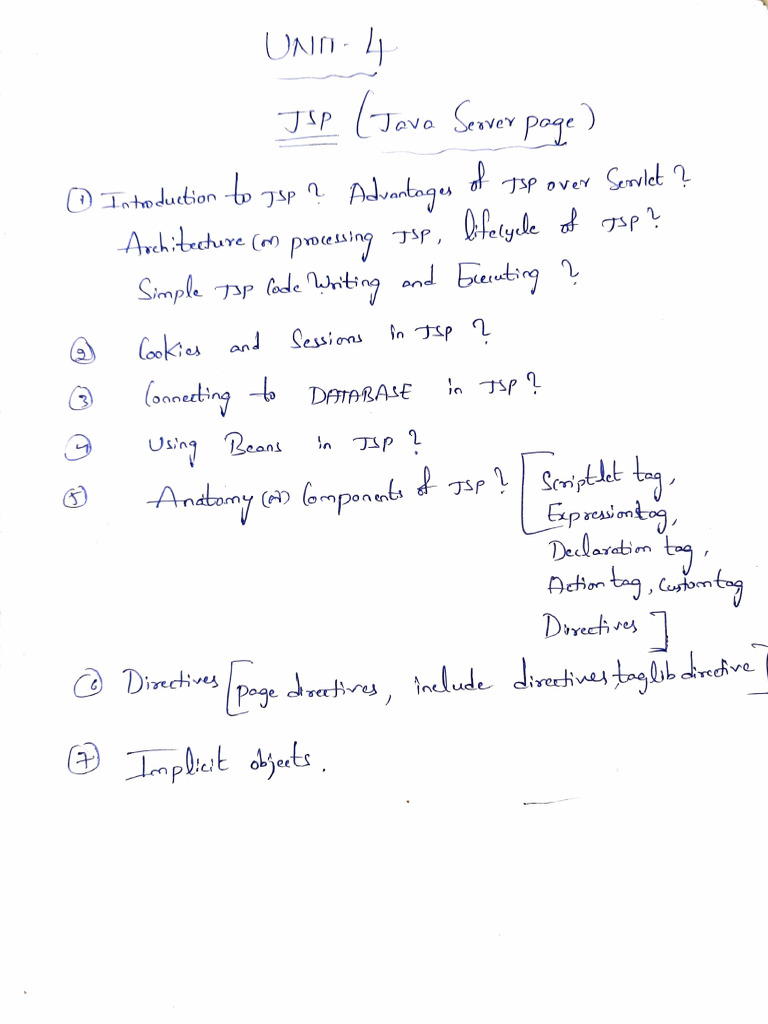 UNIT-4
JSP (Java Server page)
① Introduction to JSP? Advantages of JSP over Servlet?
Architecture (or) processing JSP, lifecycle of JSP?
Simple JSP Code Writing and Executing?
② Cookies and Sessions in JSP?
③ Connecting to DATABASE in JSP?
④ Using Beans in JSP?
⑤ Anatomy (or) Components of JSP? [Scriptlet tag,
Expression tag,
Declaration tag,
Action tag, Custom tag
Directives]
⑥ Directives [page directives, include directives, taglib directive]
⑦ Implicit objects.